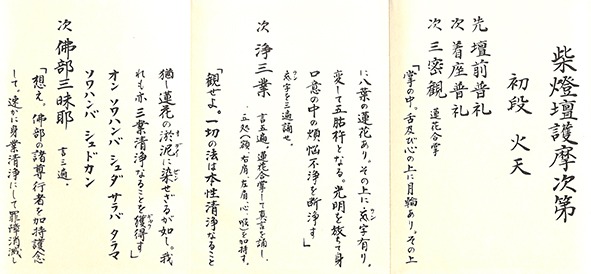 柴燈壇護摩次第
初段 火天
先壇前普礼
次着座普礼
次三密観 蓮花合掌
「掌の中、舌及び心の上に月輪あり。その上
に八葉の蓮花あり。その上に𑖮𑖳𑖽字有り。
変して五鈷杵となる。光明を放ちて身
口意の中の煩悩不浄を断浄す」
𑖮𑖳𑖽字を三遍誦せ。
次 浄三業 言五遍。蓮花合掌して真言を誦し、
五処へ額、右肩、左肩、心、喉)を加持す。
「観せよ。一切の法は本性清浄なること
猶し蓮花の淤泥に染せざるが如し。我
れも亦三業清浄なることを獲得す」
オン ソワハンバ シュダ サラバ タラマ
ソワハンバ シュドカン
次 佛部三昧耶 言三遍。
「想え。佛部の諸尊行者を加持護念
して、速かに身業清浄にして罪障消滅し